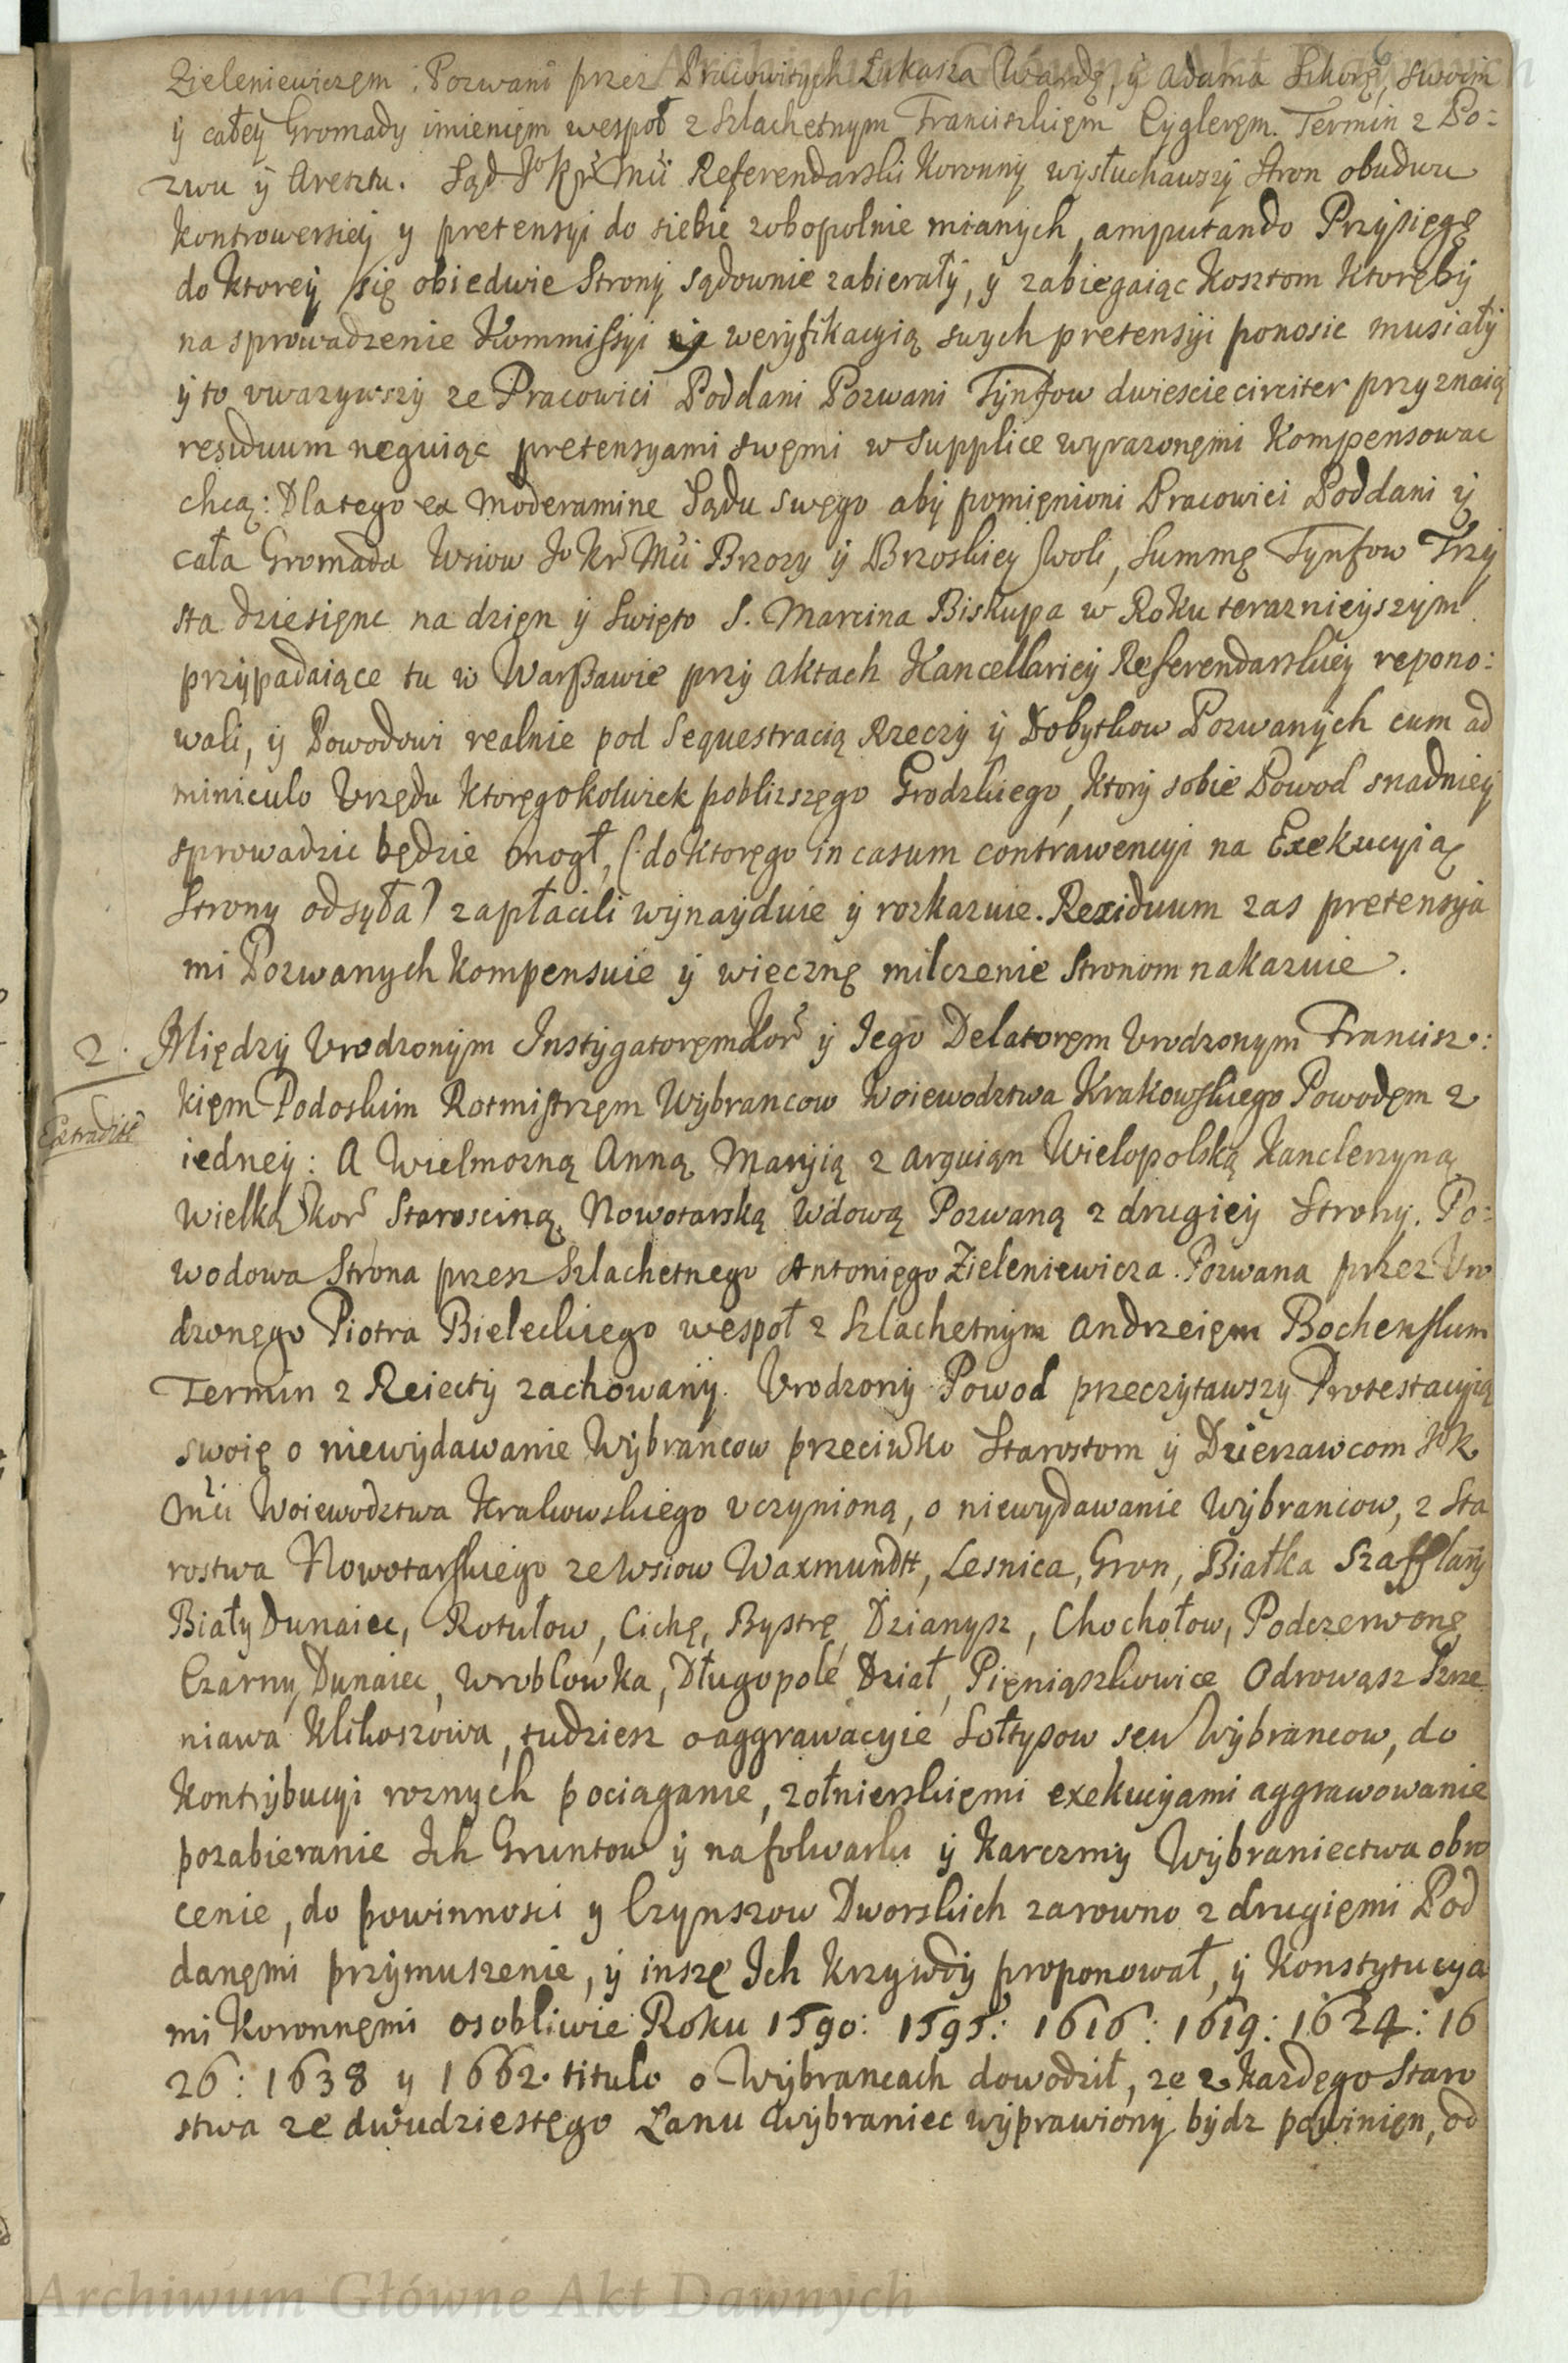 Zieleniewiczęm. Pozwani przez Pracowitych Łukasza Wardę, y Adama Sikorę, swoim
ÿ całeÿ Gromady imienięm wespoł z Szlachetnym Franciszkięm Cygleręm. Termin z Po:
zwu ÿ Aresztu. Sąd Jo Kr Mći Referendarski Koronnÿ wysłuchawszÿ Stron obudwu
kontrowersieÿ y pretensyi do siebie zobopolnie mianych, amputando Przysięgę
do ktoreÿ się obiedwie Stronÿ sądownie zabierałÿ, ÿ zabiegaiąc Kosztom ktoręby
na sprowadzenie Kommissyi weryfikacyią swych pretensyi ponosic musiałÿ
ÿ to uwazywszÿ ze Pracowici Poddani Pozwani Tynfow dwiescie circiter przyznaią
residuum neguiąc pretensyami swęmi w Supplice wyrazonęmi Kompensowac
chcą: Dlatego ex moderamine Sądu swęgo abÿ pomięnioni Pracowici Poddani ÿ
cała Gromada Wsiow Jo Kr Mći Brozy ÿ Brzoskiey Woli, Summę Tynfow Trzÿ
sta dziesięnc na dzięn ÿ Swięto S. Marcina Biskupa w Roku teraznieÿszÿm
przÿpadaiące tu w Warszawie przÿ Aktach Kancellarieÿ Referendarskieÿ repono:
wali, ÿ Powodowi realnie pod Sequestracią Rzeczÿ ÿ Dobytkow Pozwanÿch cum ad
miniculo Urzędu ktoręgokolwiek poblizszęgo Grodzkiego, ktorÿ sobie Powod snadnieÿ
sprowadzic będzie mogł, (: do ktoręgo in casum contrawencyi na Exekucyią
Strony odsÿła) zapłacili wÿnaÿduie ÿ rozkazuie. Reziduum zas pretensya
mi Pozwanych kompensuie ÿ wiecznę milczenie Stronom nakazuie.
2. Między Urodzonÿm Instÿgatoręm Kor ÿ Jego Delatoręm Urodzonym Francisz:
Extradite
kięm Podoskim Rotmistrzęm Wÿbrancow Woiewodztwa Krakowskiego Powodęm z
iedneÿ: A Wielmozną Anną Marÿią z Arquiąn Wielopolską Kanclerzyną
Wielką Kor Starosciną Nowotarską Wdową Pozwaną z drugieÿ Strony. Po:
wodowa Strona przez Szlachetnego Antonięgo Zieleniewicza. Pozwana przez Uro
dzonęgo Piotra Bieleckiego wespoł z Szlachetnÿm Andrzeięm Bochenskim
Termin z Reiectÿ zachowanÿ. Urodzonÿ Powod przeczÿtawszy Protestacyią
swoię o niewÿdawanie Wÿbrancow przeciwko Starostom ÿ Dzierzawcom Jo K
Mći Woiewodztwa Krakowskiego uczynioną, o niewydawanie Wÿbrancow, z Sta
rostwa Nowotarskiego ze Wsiow Waxmundtt, Lesnica, Gron, Białka Szafflarÿ
Biały Dunaiec, Rotułow, Cichę, Bystrę, Dzianysz, Chochołow, Podczerwonę
Czarny Dunaiec, Wroblowka, Długopolé Dział, Pięniąszkowice Odrowąsz Krze
niawa Klikoszowa, tudziesz o aggrawacyie Sołtysow seu Wÿbrancow, do
Kontrÿbucyi roznych pociaganie, zołnierskięmi exekucÿami aggrawowanie
pozabieranie Ich Gruntow ÿ na folwarki ÿ Karczmÿ Wÿbraniectwa obro
cenie, do powinnosci y Czynszow Dworskich zarowno z drugięmi Pod
danęmi przÿmuszenie, ÿ inszę Ich Krzywdÿ proponował, ÿ Konstÿtucya
mi Koronnęmi osobliwie Roku 1590: 1595: 1616: 1619: 1624: 16
26: 1638 y 1662. titulo o Wÿbrancach dowodził, ze z kazdęgo Staro
stwa ze dwudziestęgo Łanu Wÿbraniec wÿprawionÿ bÿdz powinięn, od
Archiwum Główne Akt Dawnych